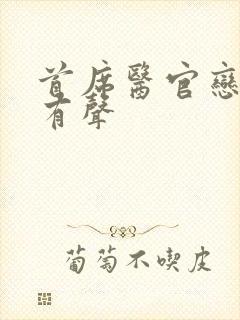 首席醫官戀
有聲
葡萄不喫皮